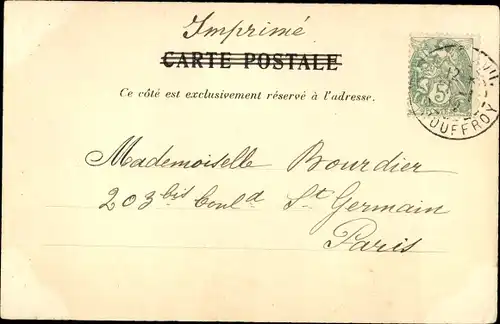 Imprimé
CARTE POSTALE
Ce côté est exclusivement réservé à l'adresse.
5
JOUFFROY
Mademoiselle Bourdier
203 bis Boul<sup>d</sup> St Germain
Paris